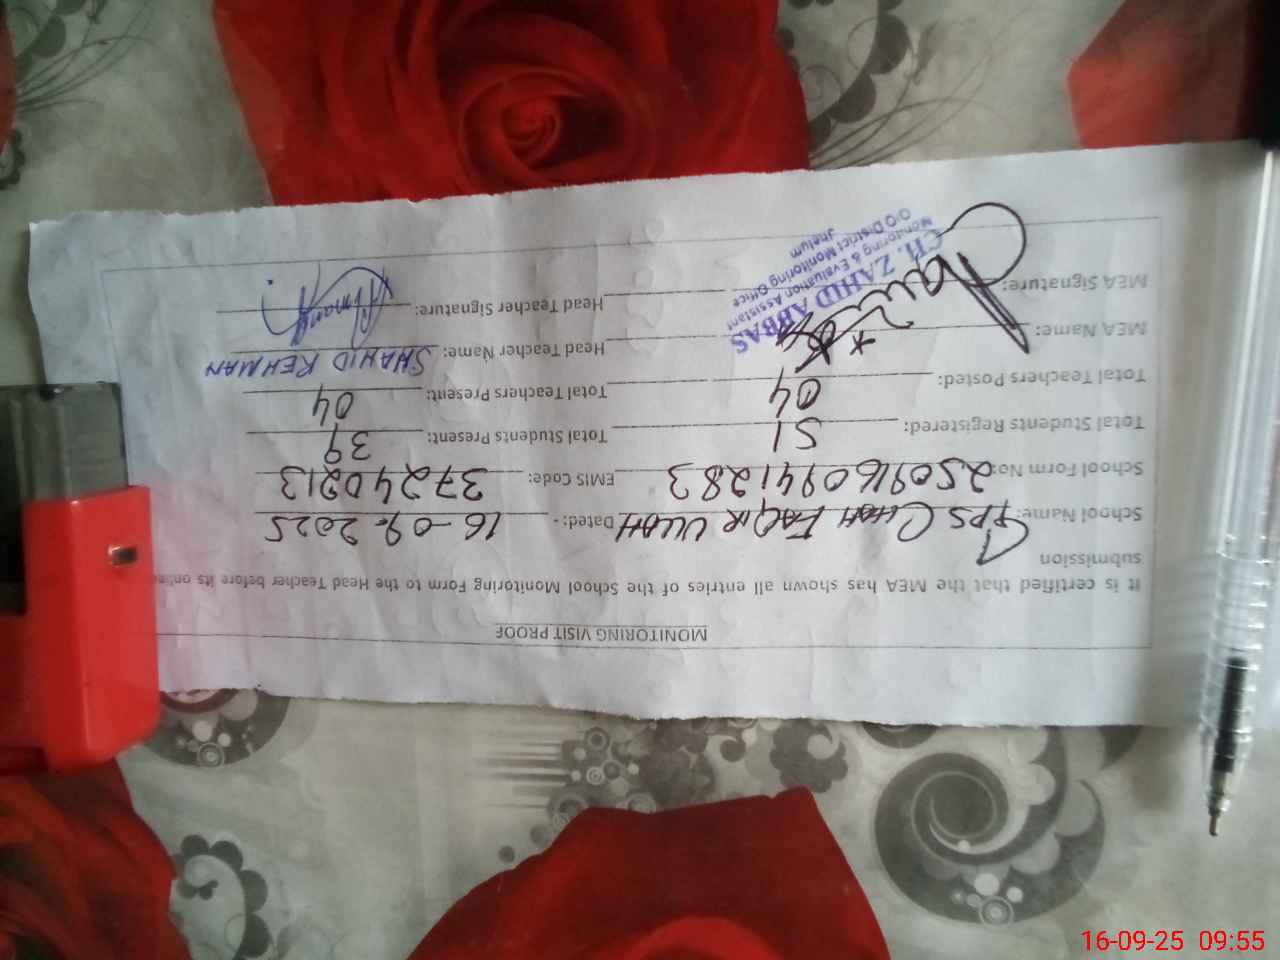 MONITORING VISIT PROOF
It is certified that the MEA has shown all entries of the School Monitoring Form to the Head Teacher before its online
submission
School Name: GPS CHAH FAQIR ULLAH Dated: - 16-09-2025
School Form No: 2509160941283 EMIS Code: 37240213
Total Students Registered: 51 Total Students Present: 39
Total Teachers Posted: 04 Total Teachers Present: 04
MEA Name: Head Teacher Name: SHAHID REHMAN
MEA Signature: Head Teacher Signature:
CH. ZAHID ABBAS
Monitoring & Evaluation Assistant
O/O District Monitoring Office
Jhelum
16-09-25 09:55